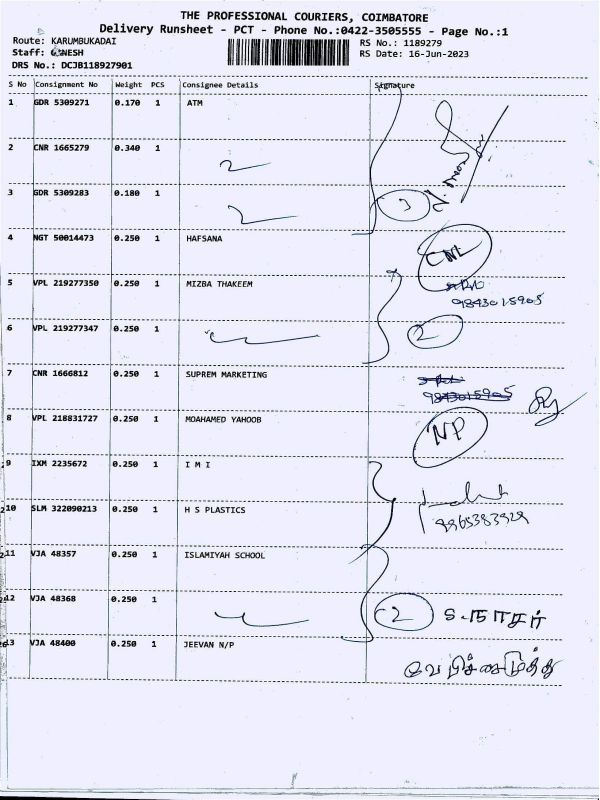 THE PROFESSIONAL COURIERS, COIMBATORE
Delivery Runsheet - PCT - Phone No.:0422-3505555 - Page No.:1
Route: KARUMBUKADAI
RS No.: 1189279
Staff: GANESH
RS Date: 16-Jun-2023
DRS No.: DCJB118927901
S No Consignment No Weight PCS Consignee Details Signature
1 GDR 5309271 0.170 1 ATM
2 CNR 1665279 0.340 1
3 GDR 5309283 0.180 1 3
4 NGT 50014473 0.250 1 HAFSANA CNL
5 VPL 219277350 0.250 1 MIZBA THAKEEM
9843015905
6 VPL 219277347 0.250 1 2
7 CNR 1666812 0.250 1 SUPREM MARKETING
9843015905
8 VPL 218831727 0.250 1 MOAHAMED YAHOOB NP
9 IXM 2235672 0.250 1 I M I
10 SLM 322090213 0.250 1 H S PLASTICS
9965383929
11 VJA 48357 0.250 1 ISLAMIYAH SCHOOL
12 VJA 48368 0.250 1 2 ச.நாசர்
13 VJA 48400 0.250 1 JEEVAN N/P